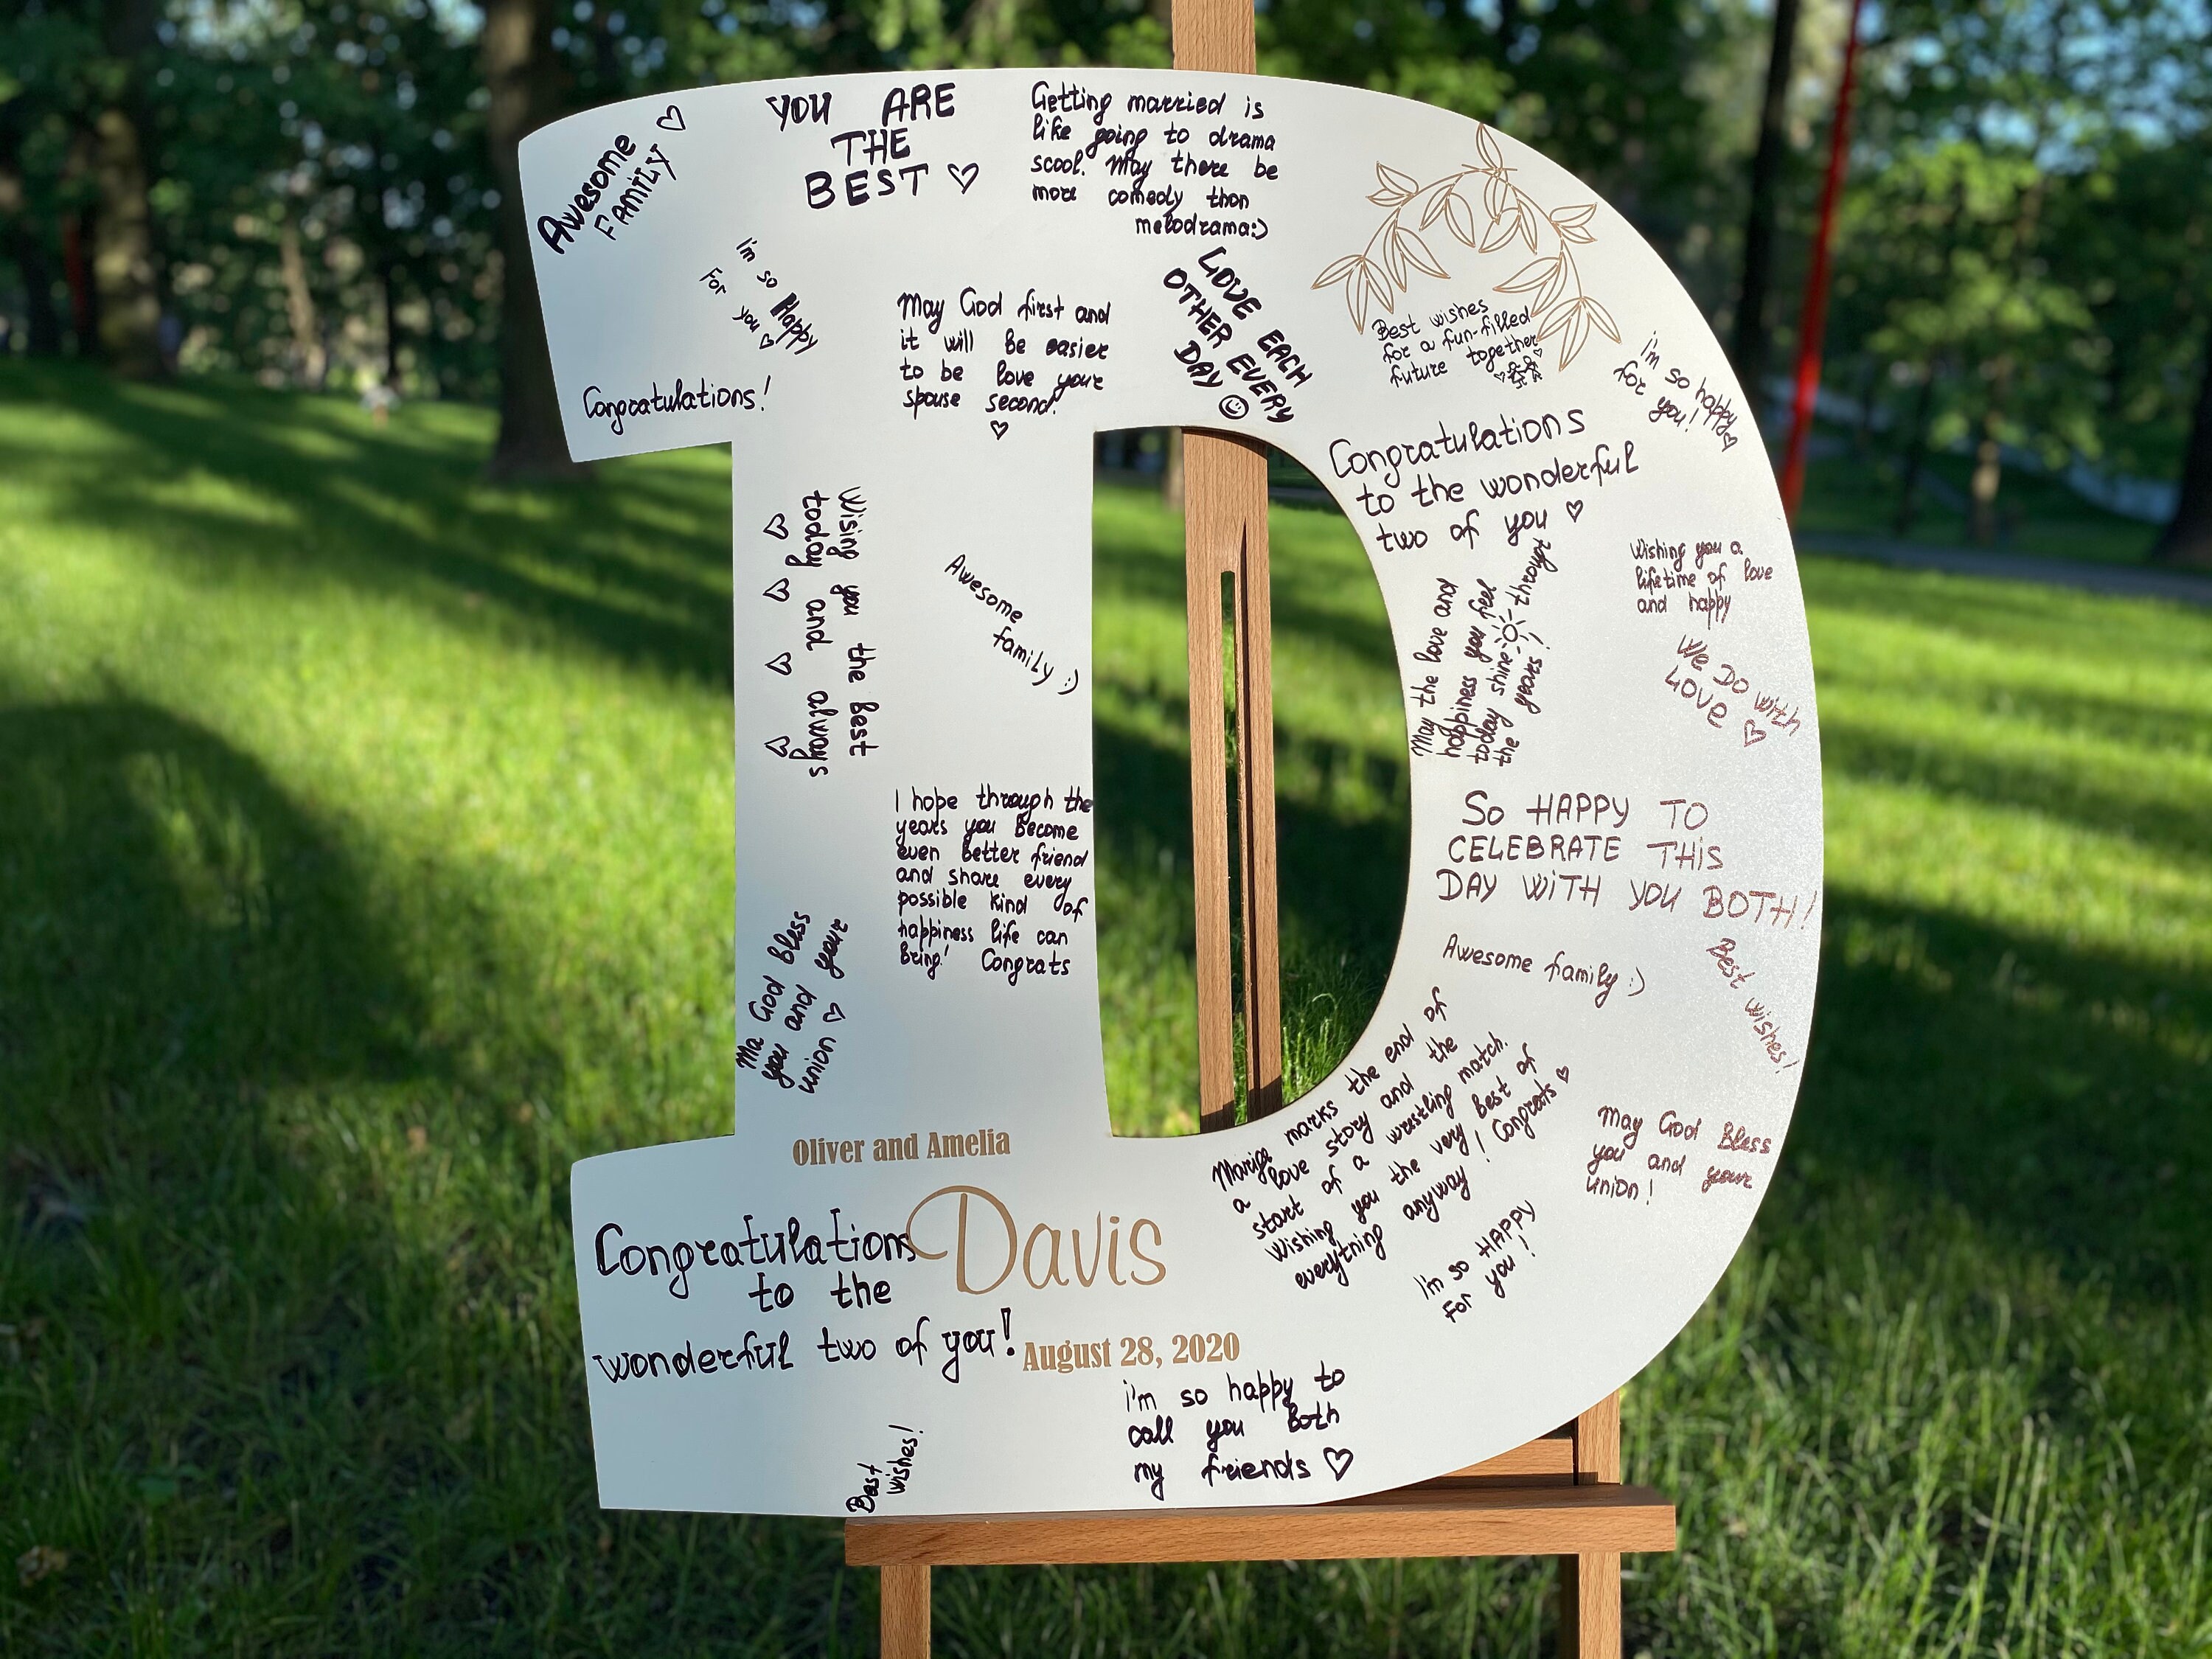 Awesome
FAMILY
YOU ARE
THE
BEST
Getting married is
like going to drama
scool. May there be
more comedy than
melodrama:)
I'm so Happy
For you
May God first and
it will be easier
to be love your
spouse second.
LOVE EACH
OTHER EVERY
DAY
Best wishes
for a fun-filled
future together
I'm so happy
for you!
Congratulations!
Congratulations
to the wonderful
two of you
Wising you the best
today and always
Awesome
family :)
May the love and
happiness you feel
today shine through
the years!
Wishing you a
lifetime of love
and happy
We Do with
LOVE
I hope through the
years you become
even better friend
and share every
possible kind of
happiness life can
bring! Congrats
SO HAPPY TO
CELEBRATE THIS
DAY WITH YOU BOTH!
Awesome family :)
Best wishes!
Ma God Bless
you and your
union
Mariga marks the end of
a love story and the
start of a wrestling match.
Wishing you the very best of
everything anyway! Congrats
May God Bless
you and your
union!
I'm so HAPPY
For you!
Oliver and Amelia
Davis
August 28, 2020
Congratulations
to the
wonderful two of you!
i'm so happy to
call you both
my friends
Best
wishes!